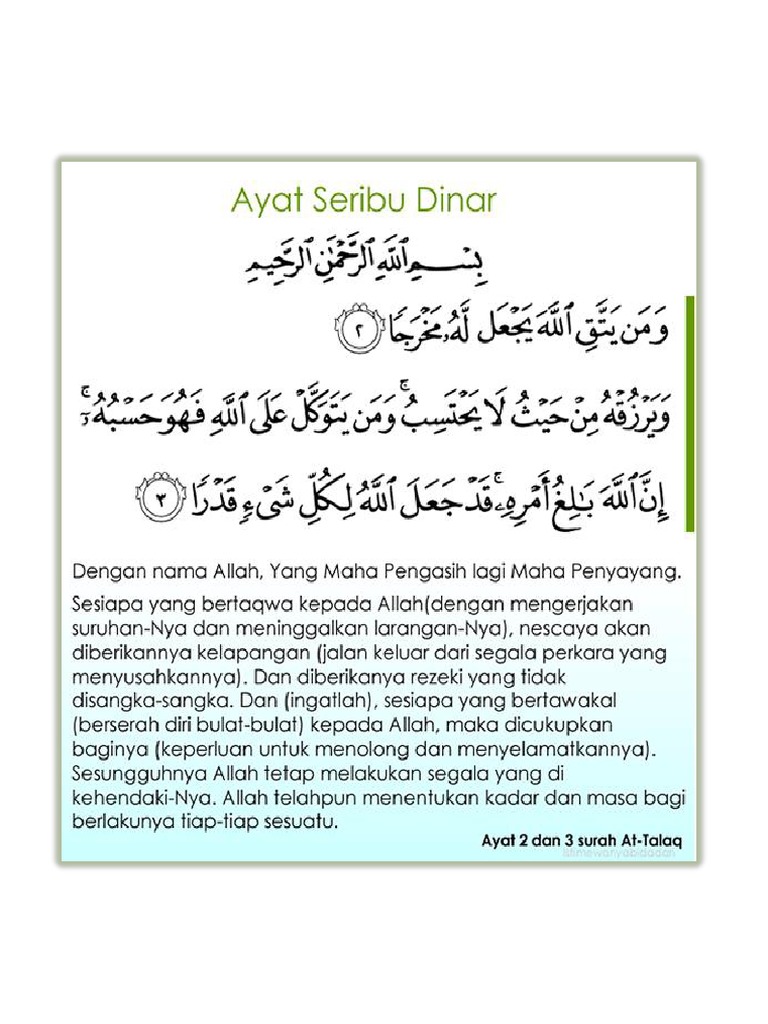 Ayat Seribu Dinar
بِسْمِ ٱللَّهِ ٱلرَّحْمَٰنِ ٱلرَّحِيمِ
وَمَن يَتَّقِ ٱللَّهَ يَجْعَل لَّهُۥ مَخْرَجًا ٢
وَيَرْزُقْهُ مِنْ حَيْثُ لَا يَحْتَسِبُ ۚ وَمَن يَتَوَكَّلْ عَلَى ٱللَّهِ فَهُوَ حَسْبُهُۥٓ ۚ
إِنَّ ٱللَّهَ بَٰلِغُ أَمْرِهِۦ ۚ قَدْ جَعَلَ ٱللَّهُ لِكُلِّ شَىْءٍ قَدْرًا ٣
Dengan nama Allah, Yang Maha Pengasih lagi Maha Penyayang.
Sesiapa yang bertaqwa kepada Allah(dengan mengerjakan
suruhan-Nya dan meninggalkan larangan-Nya), nescaya akan
diberikannya kelapangan (jalan keluar dari segala perkara yang
menyusahkannya). Dan diberikanya rezeki yang tidak
disangka-sangka. Dan (ingatlah), sesiapa yang bertawakal
(berserah diri bulat-bulat) kepada Allah, maka dicukupkan
baginya (keperluan untuk menolong dan menyelamatkannya).
Sesungguhnya Allah tetap melakukan segala yang di
kehendaki-Nya. Allah telahpun menentukan kadar dan masa bagi
berlakunya tiap-tiap sesuatu.
Ayat 2 dan 3 surah At-Talaq